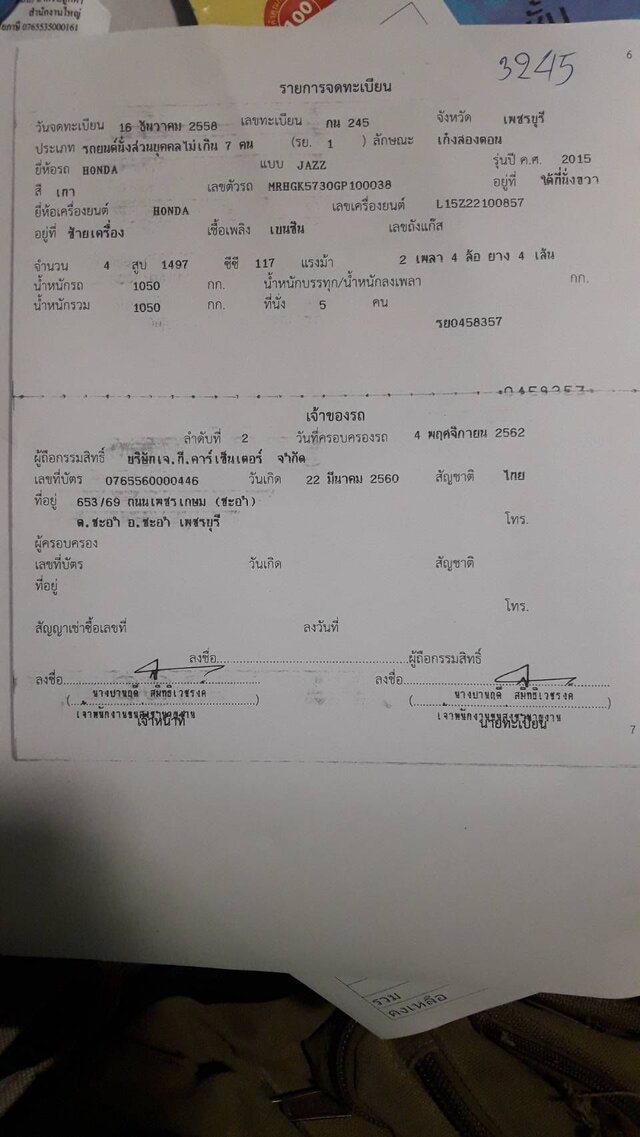 สำนักงานใหญ่
0765535000161
100
3245
6
รายการจดทะเบียน
วันจดทะเบียน 16 ธันวาคม 2558 เลขทะเบียน กน 245 จังหวัด เพชรบุรี
ประเภท รถยนต์นั่งส่วนบุคคลไม่เกิน 7 คน (รย. 1 ) ลักษณะ เก๋งสองตอน
ยี่ห้อรถ HONDA แบบ JAZZ รุ่นปี ค.ศ. 2015
สี เทา เลขตัวรถ MRHGK5730GP100038 อยู่ที่ ใต้ที่นั่งขวา
ยี่ห้อเครื่องยนต์ HONDA เลขเครื่องยนต์ L15Z22100857
อยู่ที่ ซ้ายเครื่อง เชื้อเพลิง เบนซิน เลขถังแก๊ส
จำนวน 4 สูบ 1497 ซีซี 117 แรงม้า 2 เพลา 4 ล้อ ยาง 4 เส้น
น้ำหนักรถ 1050 กก. น้ำหนักบรรทุก/น้ำหนักลงเพลา กก.
น้ำหนักรวม 1050 กก. ที่นั่ง 5 คน
รย0458357
0458357
เจ้าของรถ
ลำดับที่ 2 วันที่ครอบครองรถ 4 พฤศจิกายน 2562
ผู้ถือกรรมสิทธิ์ บริษัทเจ.ที.คาร์เซ็นเตอร์ จำกัด
เลขที่บัตร 0765560000446 วันเกิด 22 มีนาคม 2560 สัญชาติ ไทย
ที่อยู่ 653/69 ถนนเพชรเกษม (ชะอำ)
ต.ชะอำ อ.ชะอำ เพชรบุรี โทร.
ผู้ครอบครอง
เลขที่บัตร วันเกิด สัญชาติ
ที่อยู่
โทร.
สัญญาเช่าซื้อเลขที่ ลงวันที่
ลงชื่อ ผู้ถือกรรมสิทธิ์
ลงชื่อ ลงชื่อ
( นางปานฤดี สมิทธิเวชรงค์ ) ( นางปานฤดี สมิทธิเวชรงค์ )
เจ้าพนักงานขนส่งชำนาญงาน เจ้าพนักงานขนส่งชำนาญงาน
เจ้าหน้าที่ นายทะเบียน
7
รวม
คงเหลือ